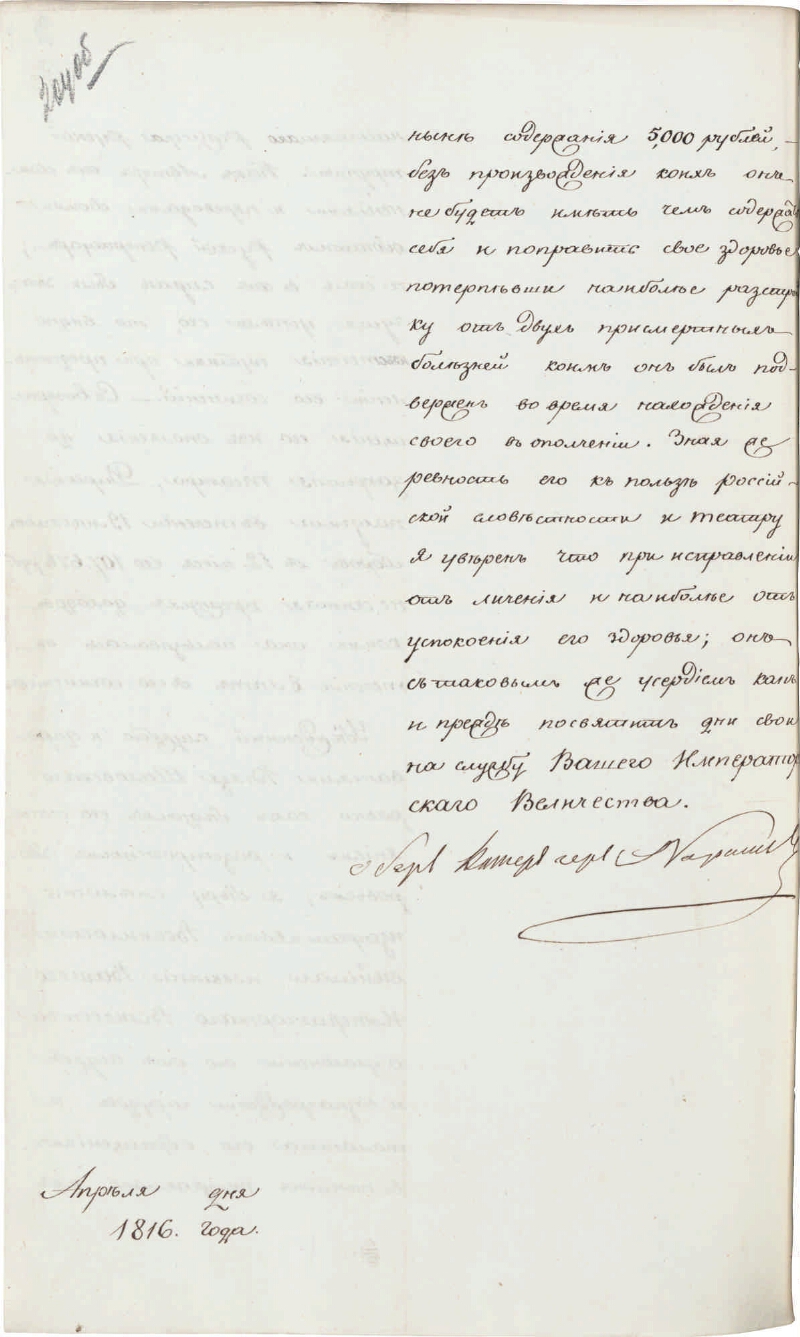 нынѣ содержанія 5,000 рублей,
безъ произвожденія коихъ онъ
не будетъ имѣть чемъ содержа
себя и поправить свое здоровье
потерпѣвши наиболѣе разстро
ку отъ двухъ присмертныхъ
болѣзней коимъ онъ былъ под-
верженъ во время нахожденія
своего въ ополченіи. Зная же
ревность его къ пользѣ россій-
ской словѣстности и театру
я увѣренъ что при исправленіи
отъ личенія и наиболѣе отъ
успокоенія его здоровья; онъ
съ таковымъ же усердіемъ какъ
и преждѣ посвятитъ дни свои
на службу Вашего Император
скаго Величества.
оберъ камеръ геръ Нарышк
Апрѣля дня
1816. года.